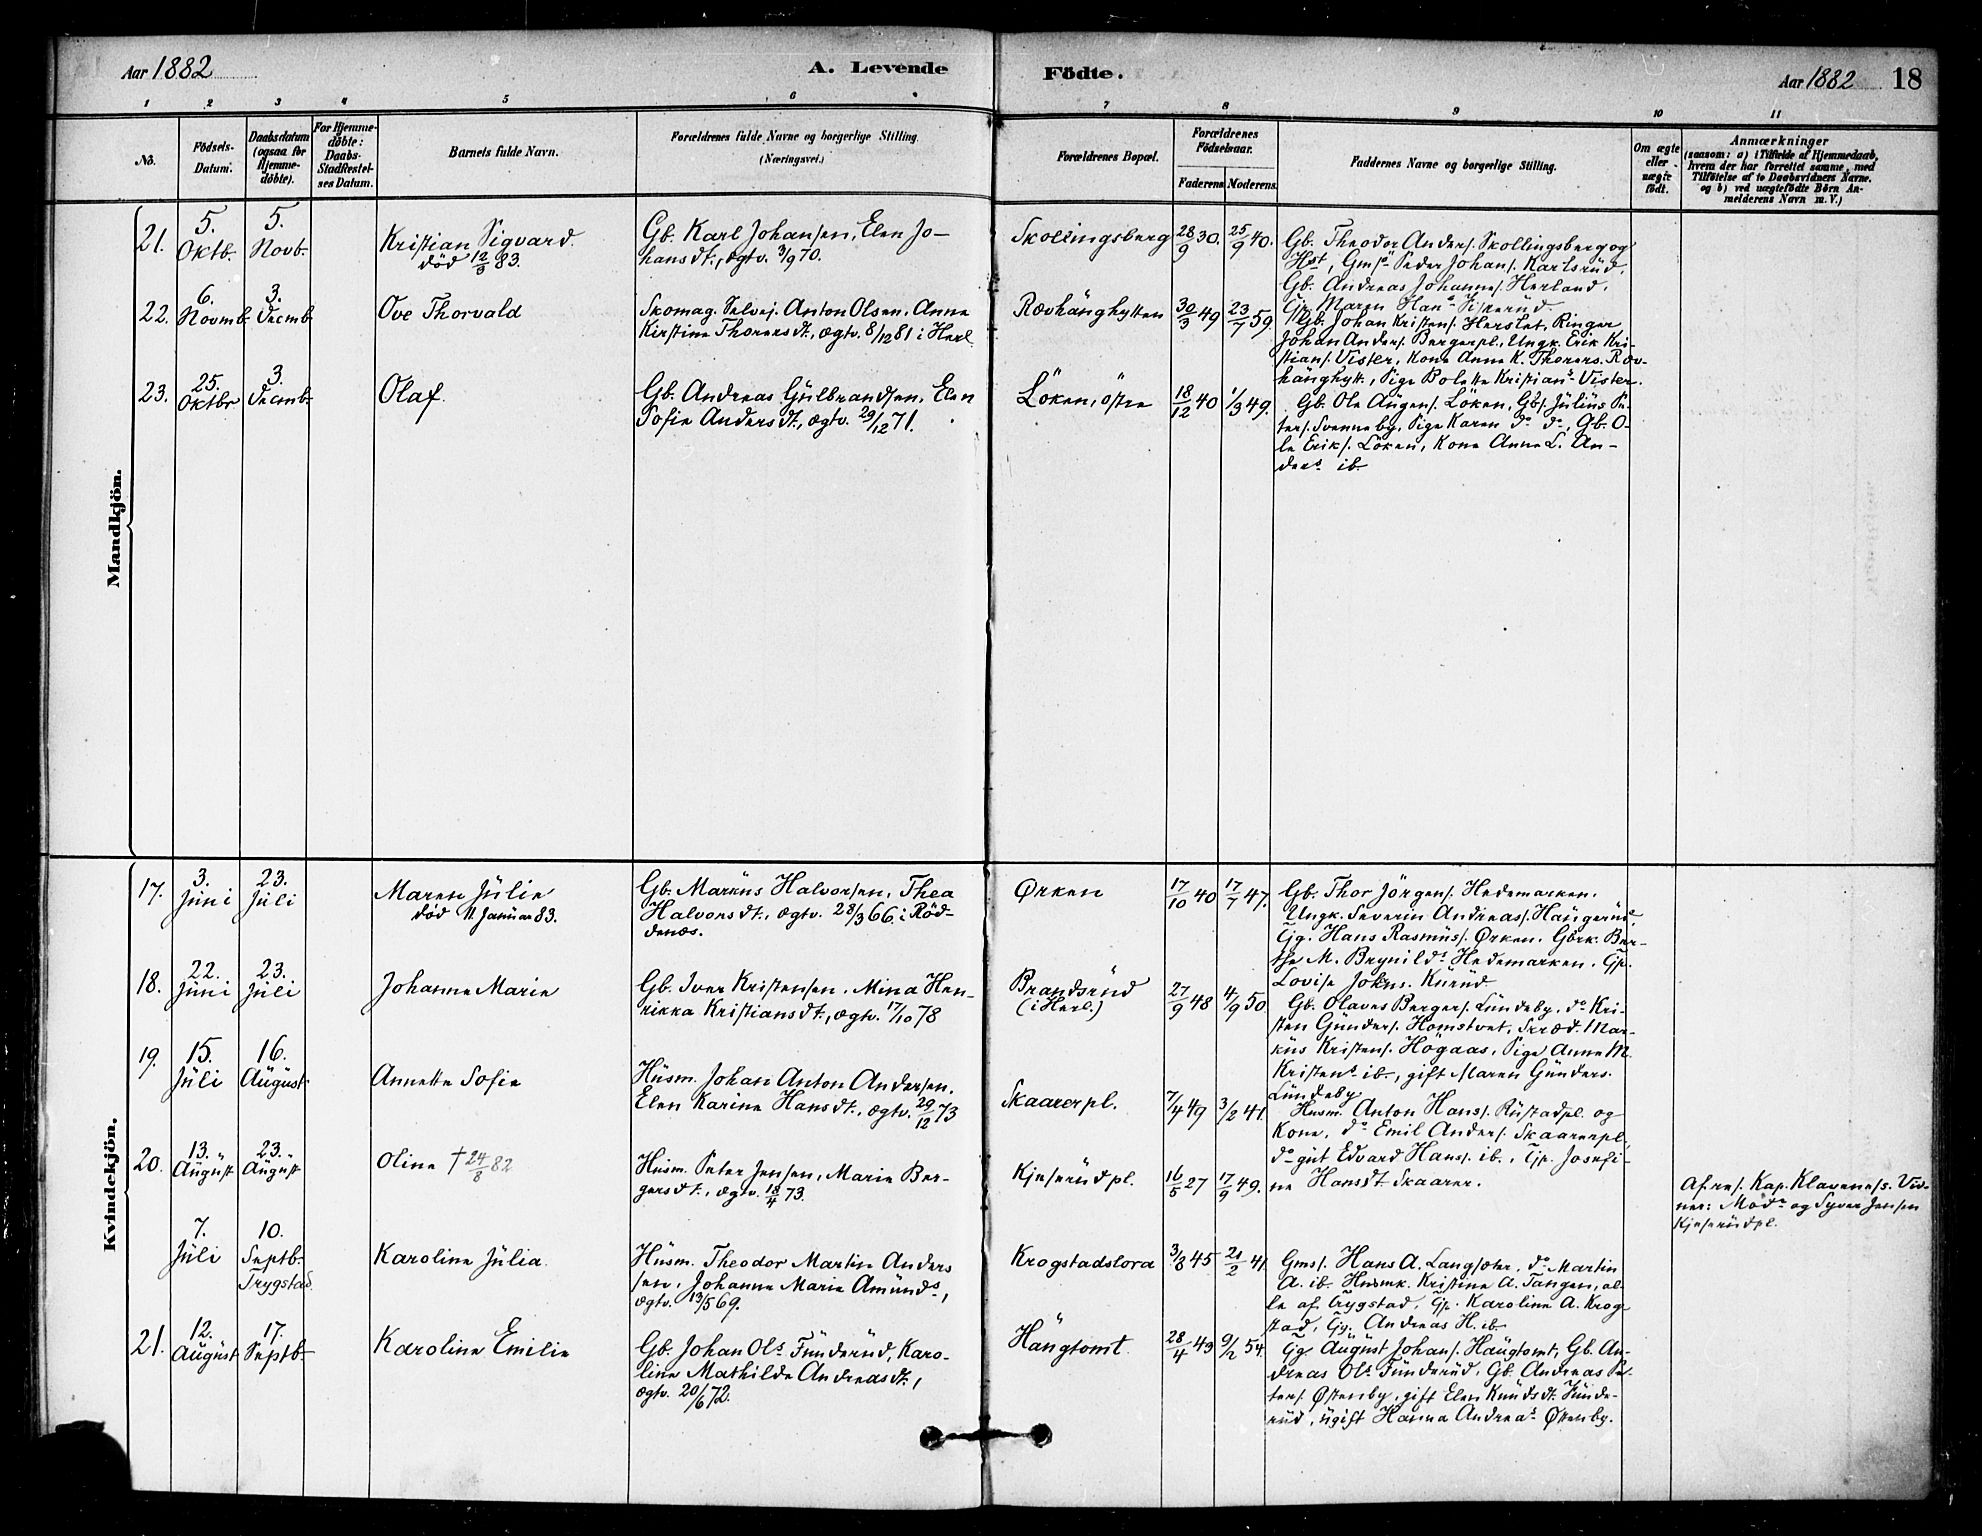 Aar 1882
A. Levende
Födte.
Aar 1882
18
1 2 3 4 5 6 7 8 9 10 11
No.
Födsels-
Datum.
Daabsdatum
(ogsaa for
Hjemme-
döbte).
For Hjemme-
döbte:
Daabs-
Stadfestel-
ses Datum.
Barnets fulde Navn.
Forældrenes fulde Navne og borgerlige Stilling.
(Næringsvei.)
Forældrenes Bopæl.
Forældrenes
Födselsaar.
Faderens Moderens.
Faddernes Navne og borgerlige Stilling.
Om ægte
eller
uægte
födt.
Anmærkninger
(saasom: a) i Tilfælde af Hjemmedaab,
hvem der har forrettet samme, med
Tilföielse af to Daabsvidners Navne,
og b) ved uægtefödte Börn An-
melderens Navn m. V.)
Mandkjön.
21.
5.
Oktb.
5.
Novb.
Kristian Sigvard.
död 12/3 83.
Gb. Karl Johansen, Elen Jo-
hansdt., ægtv. 3/9 70.
Skollingsberg
28/9 30.
25/9 40.
Gb. Theodor Anders. Skollingsberg og
Hst, Gms. Peder Johans. Karlsrud,
Gb. Andreas Johannes. Herland,
Gp. Maren Hans.
22.
6.
Novmb.
3.
Decmb.
Ove Thorvald
Skomag. Selvej. Anton Olsen, Anne
Kirstine Thorersdt., ægtv. 8/12 81 i Herl.
Rævhänghytten
30/3 49
23/7 59.
Gb. Johan Kristens. Herslet, Ringer
Johan Anders. Bergerpl., Ungk. Erik Kri-
stians. Vister, Kone Anne K. Thorers. Ræv-
hänghytt., Pige Bolette Kristians. Vister.
23.
25.
Oktbr
3.
Decmb.
Olaf.
Gb. Andreas Gulbrandsen, Elen
Sofie Andersdt., ægtv. 29/12 71.
Löken, östre
18/12 40
1/3 49.
Gb. Ole Augens. Löken, Gbs. Julius Pe-
ters. Svenneby, Pige Karen do do, Gb. O-
le Eriks. Löken, Kone Anne L. An-
ders. ib.
Kvindekjön.
17.
3.
Juni
23.
Juli
Maren Julie
död 11 Januar 83.
Gb. Markus Halvorsen, Thea
Halvorsdt., ægtv. 28/3 66. i Röd-
denæs.
Ørken
17/10 40
17/7 47.
Gb. Thor Jörgens. Hedemarken.
Ungk. Severin Andreas. Haugerud,
Gg. Hans Rasmus. Ørken. Gbrk. Ber-
the M. Brynilds. Hedemarken. Gp.
Lovise Johns. Kurud
18.
22.
Juni
23.
Juli
Johanne Marie
Gb. Iver Kristensen, Mina Hen-
rikka Kristiansdt., ægtv. 17/10 78
Brandsrud
(i Herl.)
27/9 48
4/9 50
Gb. Olaves Bergers. Lundeby, do Kri-
sten Gunders. Homstvet, Skræd. Mar-
kus Kristens. Högaas, Pige Anne M.
Kristens. ib., gift Maren Gunders.
Lundeby
19.
15.
Juli
16.
August.
Annette Sofie
Husm. Johan Anton Andersen.
Elen Karine Hansdt., ægtv. 29/12 73
Skaarerpl.
7/4 49
3/2 41.
Husm. Anton Hans. Rustadpl. og
Kone, do Emil Anders. Skaarerpl,
do gut Edvard Hans. ib., Gp. Josefi-
ne Hansdt Skaarer.
20.
13.
August
23.
August
Oline † 24/8 82
Husm. Peter Jensen, Marie Ber-
gersdt., ægtv. 18/4 73.
Kjeserudpl.
16/5 27
17/9 49.
Af res. Kap. Klaveness. Vid-
ner: Mod. og Syver Jensen
Kjeserudpl.
7.
Juli
10.
Septb.
Trygstad
Karoline Julia.
Husm. Theodor Martin Anders
sen, Johanne Marie Amunds.,
ægtv. 13/5 69.
Krogstadslora
3/8 45
21/2 41.
Gms. Hans A. Langsæter, do Martin
A. ib. Husmk. Kristine A. Tangen, al-
le af Trygstad, Gp. Karoline A. Krog-
stad, Gg. Andreas H. ib.
21.
12.
August
17.
Septb.
Karoline Emilie
Gb. Johan Ols. Funderud, Karo-
line Mathilde Andreasdt.,
ægtv. 20/6 72.
Haugtomt.
28/4 43
9/2 54.
Gg August Johans. Haugtomt, Gb. An-
dreas Ols. Funderud, Gb. Andreas Pe-
ters. Østenby, gift Elen Knudsdt. Funde-
rud, ugift Hanna Andreas. Østenby.